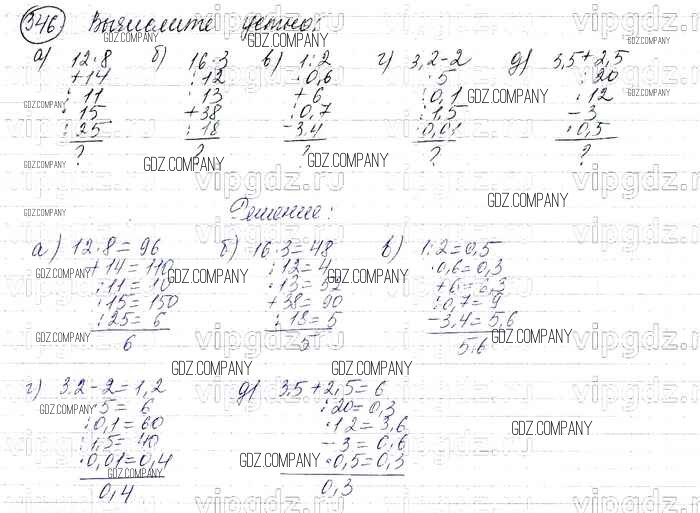 346 Вычислите устно:
а) 12·8 б) 16·3 в) 1:2 г) 3,2-2 д) 3,5+2,5
+14 :12 ·0,6 ·5 :20
:11 ·13 +6 :0,1 ·12
·15 +38 :0,7 :1,5 -3
:25 :18 -3,4 ·0,01 ·0,5
? ? ? ? ?
Решение:
а) 12·8=96 б) 16·3=48 в) 1:2=0,5
+14=110 :12=4 ·0,6=0,3
:11=10 ·13=52 +6=6,3
·15=150 +38=90 :0,7=9
:25=6 :18=5 -3,4=5,6
6 5 5,6
г) 3,2-2=1,2 д) 3,5+2,5=6
·5=6 :20=0,3
:0,1=60 ·12=3,6
:1,5=40 -3=0,6
·0,01=0,4 ·0,5=0,3
0,4 0,3
GDZ.COMPANY
vipgdz.ru